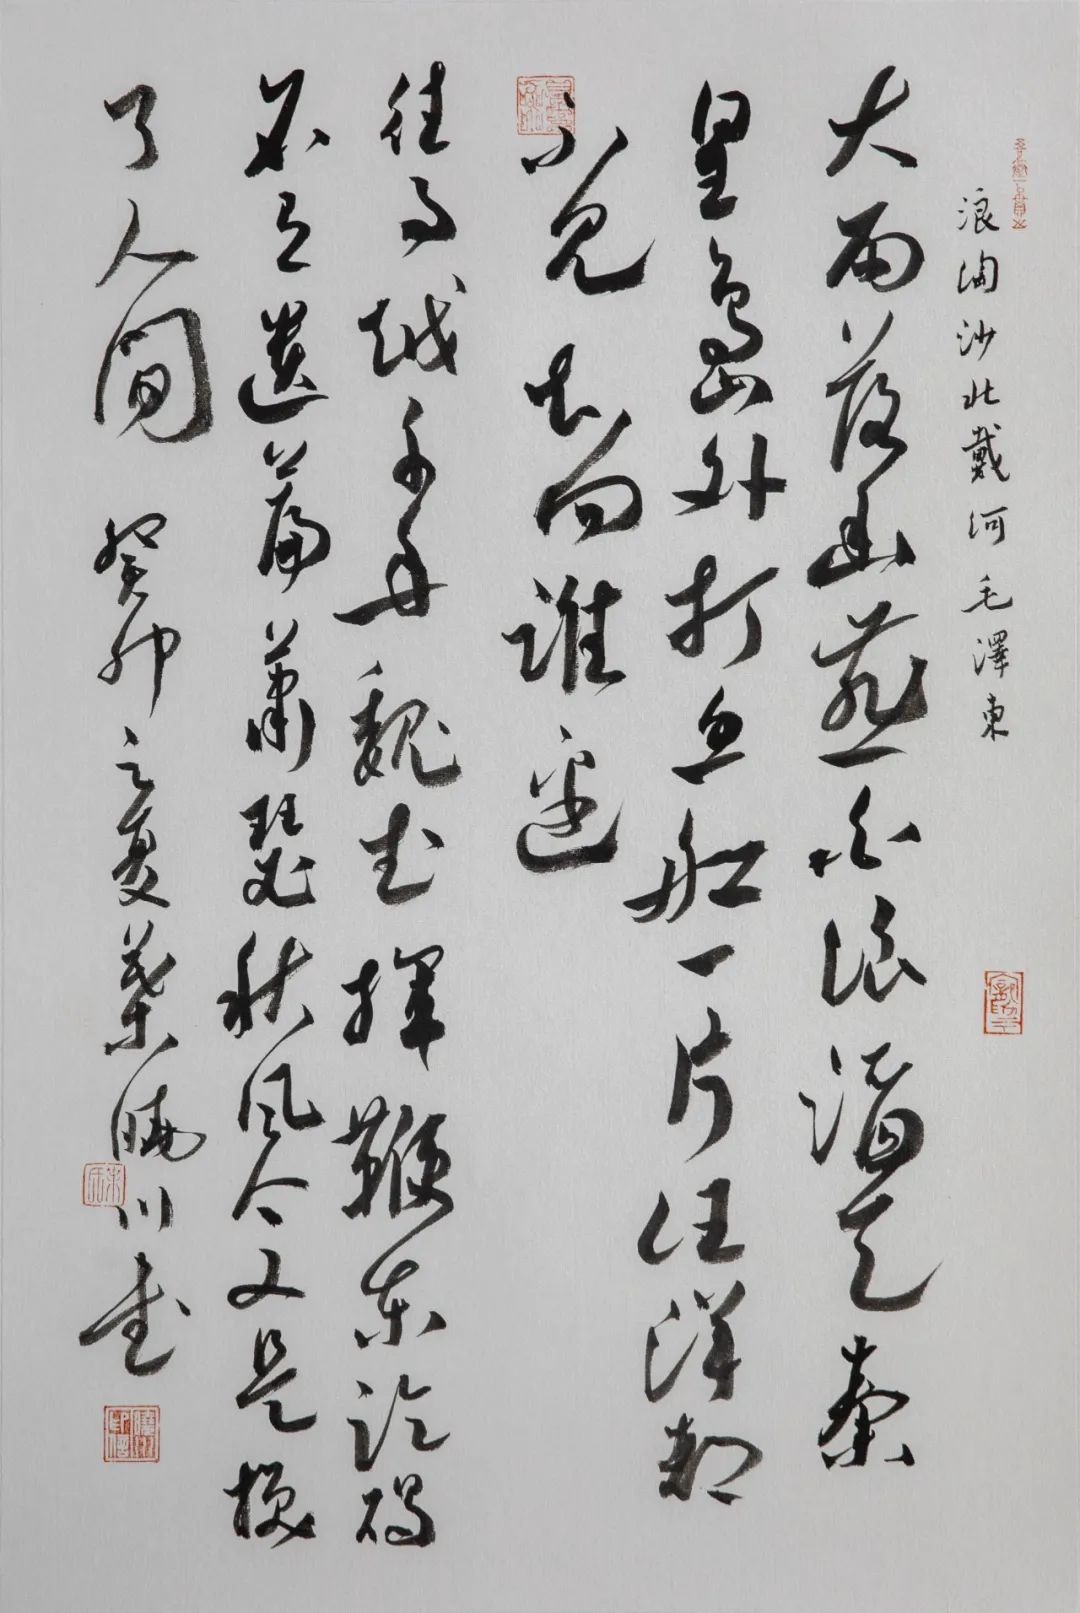 浪淘沙北戴河 毛澤東
大雨落幽燕白浪滔天秦
皇島外打魚船一片汪洋都
不見知向誰邊
往事越千年魏武揮鞭東臨碣
石有遺篇蕭瑟秋風今又是換
了人間 癸卯之夏葉曉川書